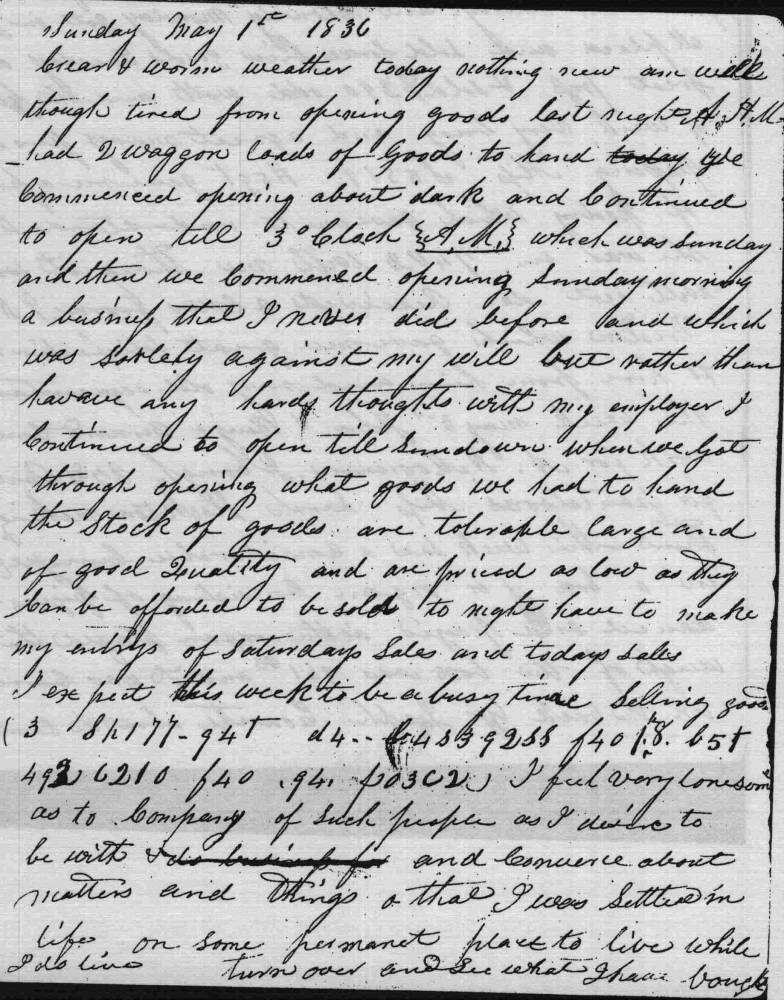 Sunday May 1st 1836
Clear & worm weather today nothing new am well
though tired from opening goods last night A. A.M.
had 2 waggon loads of Goods to hand today We
Commenced opening about dark and Continued
to open till 3 oClock {A,M,} which was Sunday
and then we Commenced opening Sunday morning
a business that I never did before and which
was sorlely against my will but rather than
havave any hards thoughts with my employer I
Continued to open till sundown when we Got
through opening what goods we had to hand
the Stock of goods are tolerable large and
of good Quality and are priced as low as they
Can be afforded to be sold to night have to make
my entrys of Saturdays Sales and todays sales
I expect this week to be a busy time Selling goods
(3 8h177-94t d4-- 4s39255 f40 1.8. 65t
492 6210 f40 .94. f03C2) I feel very lonesom
as to Company of Such people as I desire to
be with & do business for and Converce about
matters and things o that I was Settled in
life on some permanet place to live while
I do live turn over and See what I have